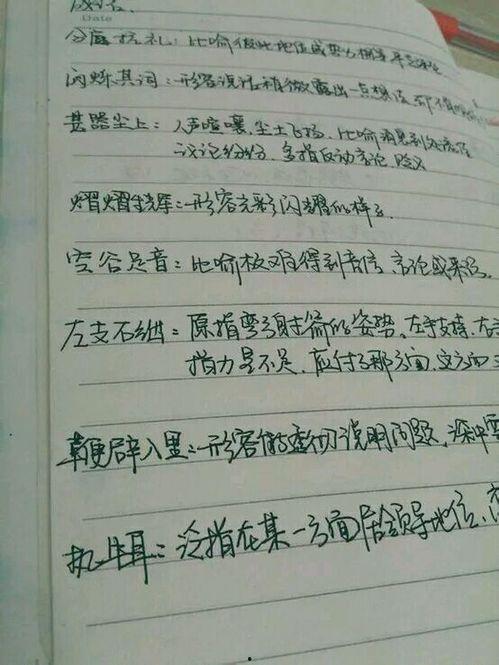 成语.
Date
分庭抗礼: 比喻彼此地位或势力相等平起平坐
闪烁其词: 形容说话稍微露出一点想法, 却不
甚嚣尘上: 人声喧嚷, 尘土飞扬. 比喻消息到处流传
议论纷纷. 多指反动言论, 贬义
熠熠生辉: 形容光彩闪耀的样子.
空谷足音: 比喻极难得到音信、言论或来访.
左支右绌: 原指弯弓射箭的姿势、左手支持, 右
指力量不足, 应付了那方面, 这方面
鞭辟入里: 形容能透彻说明问题, 深中要
执牛耳: 泛指在某一方面居领导地位.